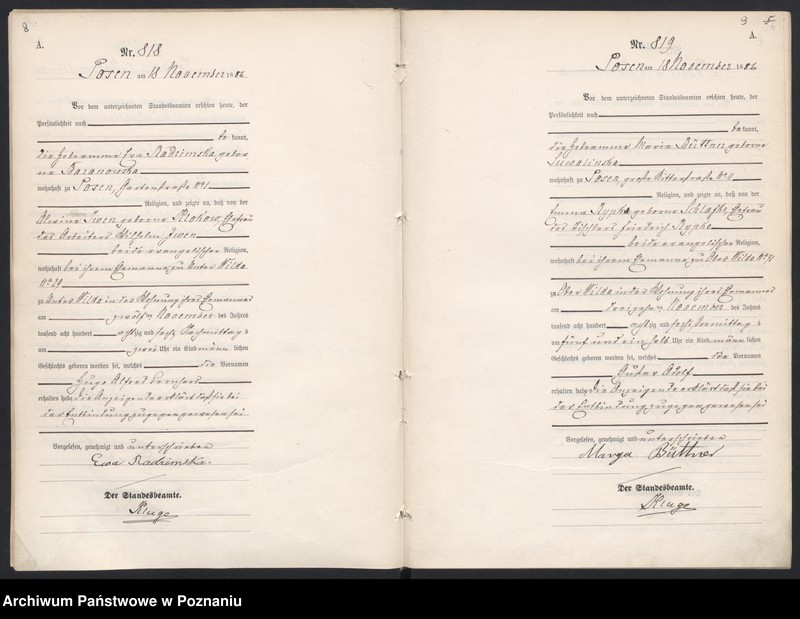 8
A.
Nr. 818
Posen am 18 November 1886
Vor dem unterzeichneten Standesbeamten erschien heute, der
Persönlichkeit nach
be kannt,
die Hebeamme Eva Radzimska gebor
ne Baranowska
wohnhaft zu Posen, Gartenstraße No 1
Religion, und zeigte an, daß von der
geborne Ehefrau
des Arbeiters Wilhelm
beide evangelischer Religion,
wohnhaft bei ihrem Ehemanne zu Unter Wilda
No 29
zu Unter Wilda in der Wohnung ihres Ehemannes
am zwölften November des Jahres
tausend acht hundert achtzig und sechs Nachmittags
um zwei Uhr ein Kind männ lichen
Geschlechts geboren worden sei, welches die Vornamen
Hugo Alfred Bernhard
erhalten habe. Die Anzeigende erklärt daß sie bei
der Entbindung zugegen gewesen sei
Vorgelesen, genehmigt und unterschrieben
Ewa Radzimska.
Der Standesbeamte.
Kluge
9 5
A.
Nr. 819
Posen am 18 November 1886
Vor dem unterzeichneten Standesbeamten erschien heute, der
Persönlichkeit nach
be kannt,
die Hebeamme Maria Büttner geborne
Suwalinska
wohnhaft zu Posen, große Ritterstraße No 11
Religion, und zeigte an, daß von der
Emma geborne Ehefrau
des Tischlers Friedrich
beide evangelischer Religion,
wohnhaft bei ihrem Ehemanne zu Ober Wilda No 31
zu Ober Wilda in der Wohnung ihres Ehemannes
am dreizehnten November des Jahres
tausend acht hundert achtzig und sechs Vormittags
um fünf und ein halb Uhr ein Kind männ lichen
Geschlechts geboren worden sei, welches die Vornamen
Gustav Adolf
erhalten habe. Die Anzeigende erklärt daß sie bei
der Entbindung zugegen gewesen sei
Vorgelesen, genehmigt und unterschrieben
Marya Büttner
Der Standesbeamte.
Kluge
Archiwum Państwowe w Poznaniu